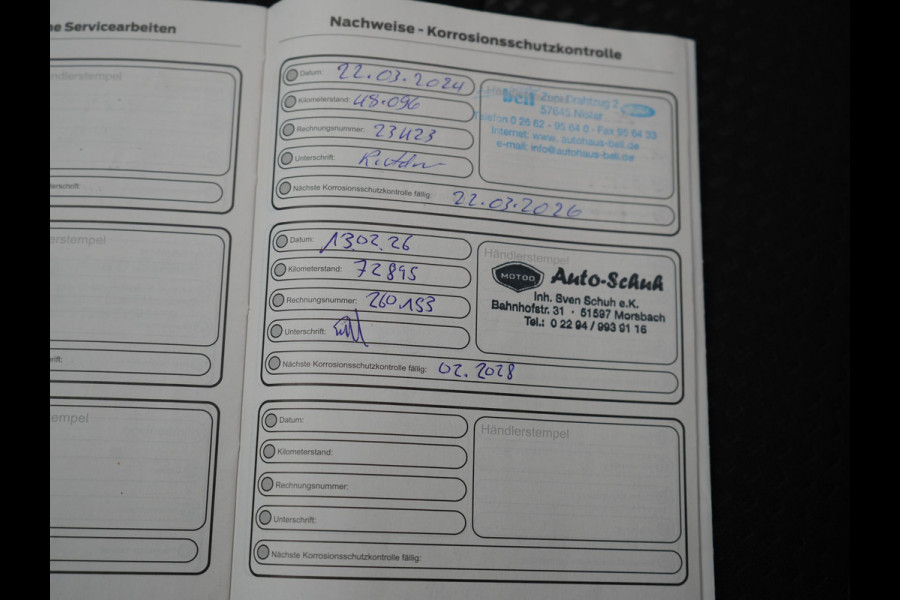 e Servicearbeiten
ndlerstempel
schrift:
erstempel
ift:
empel
Nachweise - Korrosionsschutzkontrolle
Datum: 22.03.2024
Kilometerstand: 48.096
Rechnungsnummer: 23423
Unterschrift:
Nächste Korrosionsschutzkontrolle fällig: 22.03.2026
beil Zum Drahtzug 2
57645 Nister
Telefon 0 26 62 - 95 64 0 · Fax 95 64 33
Internet: www. autohaus-beil.de
e-mail: info@autohaus-beil.de
Datum: 13.02.26
Kilometerstand: 72895
Rechnungsnummer: 260.153
Unterschrift:
Nächste Korrosionsschutzkontrolle fällig: 02.2028
Händlerstempel
MOTOO Auto-Schuh
Inh. Sven Schuh e.K.
Bahnhofstr. 31 · 51597 Morsbach
Tel.: 0 22 94 / 993 91 16
Datum:
Kilometerstand:
Rechnungsnummer:
Unterschrift:
Nächste Korrosionsschutzkontrolle fällig:
Händlerstempel